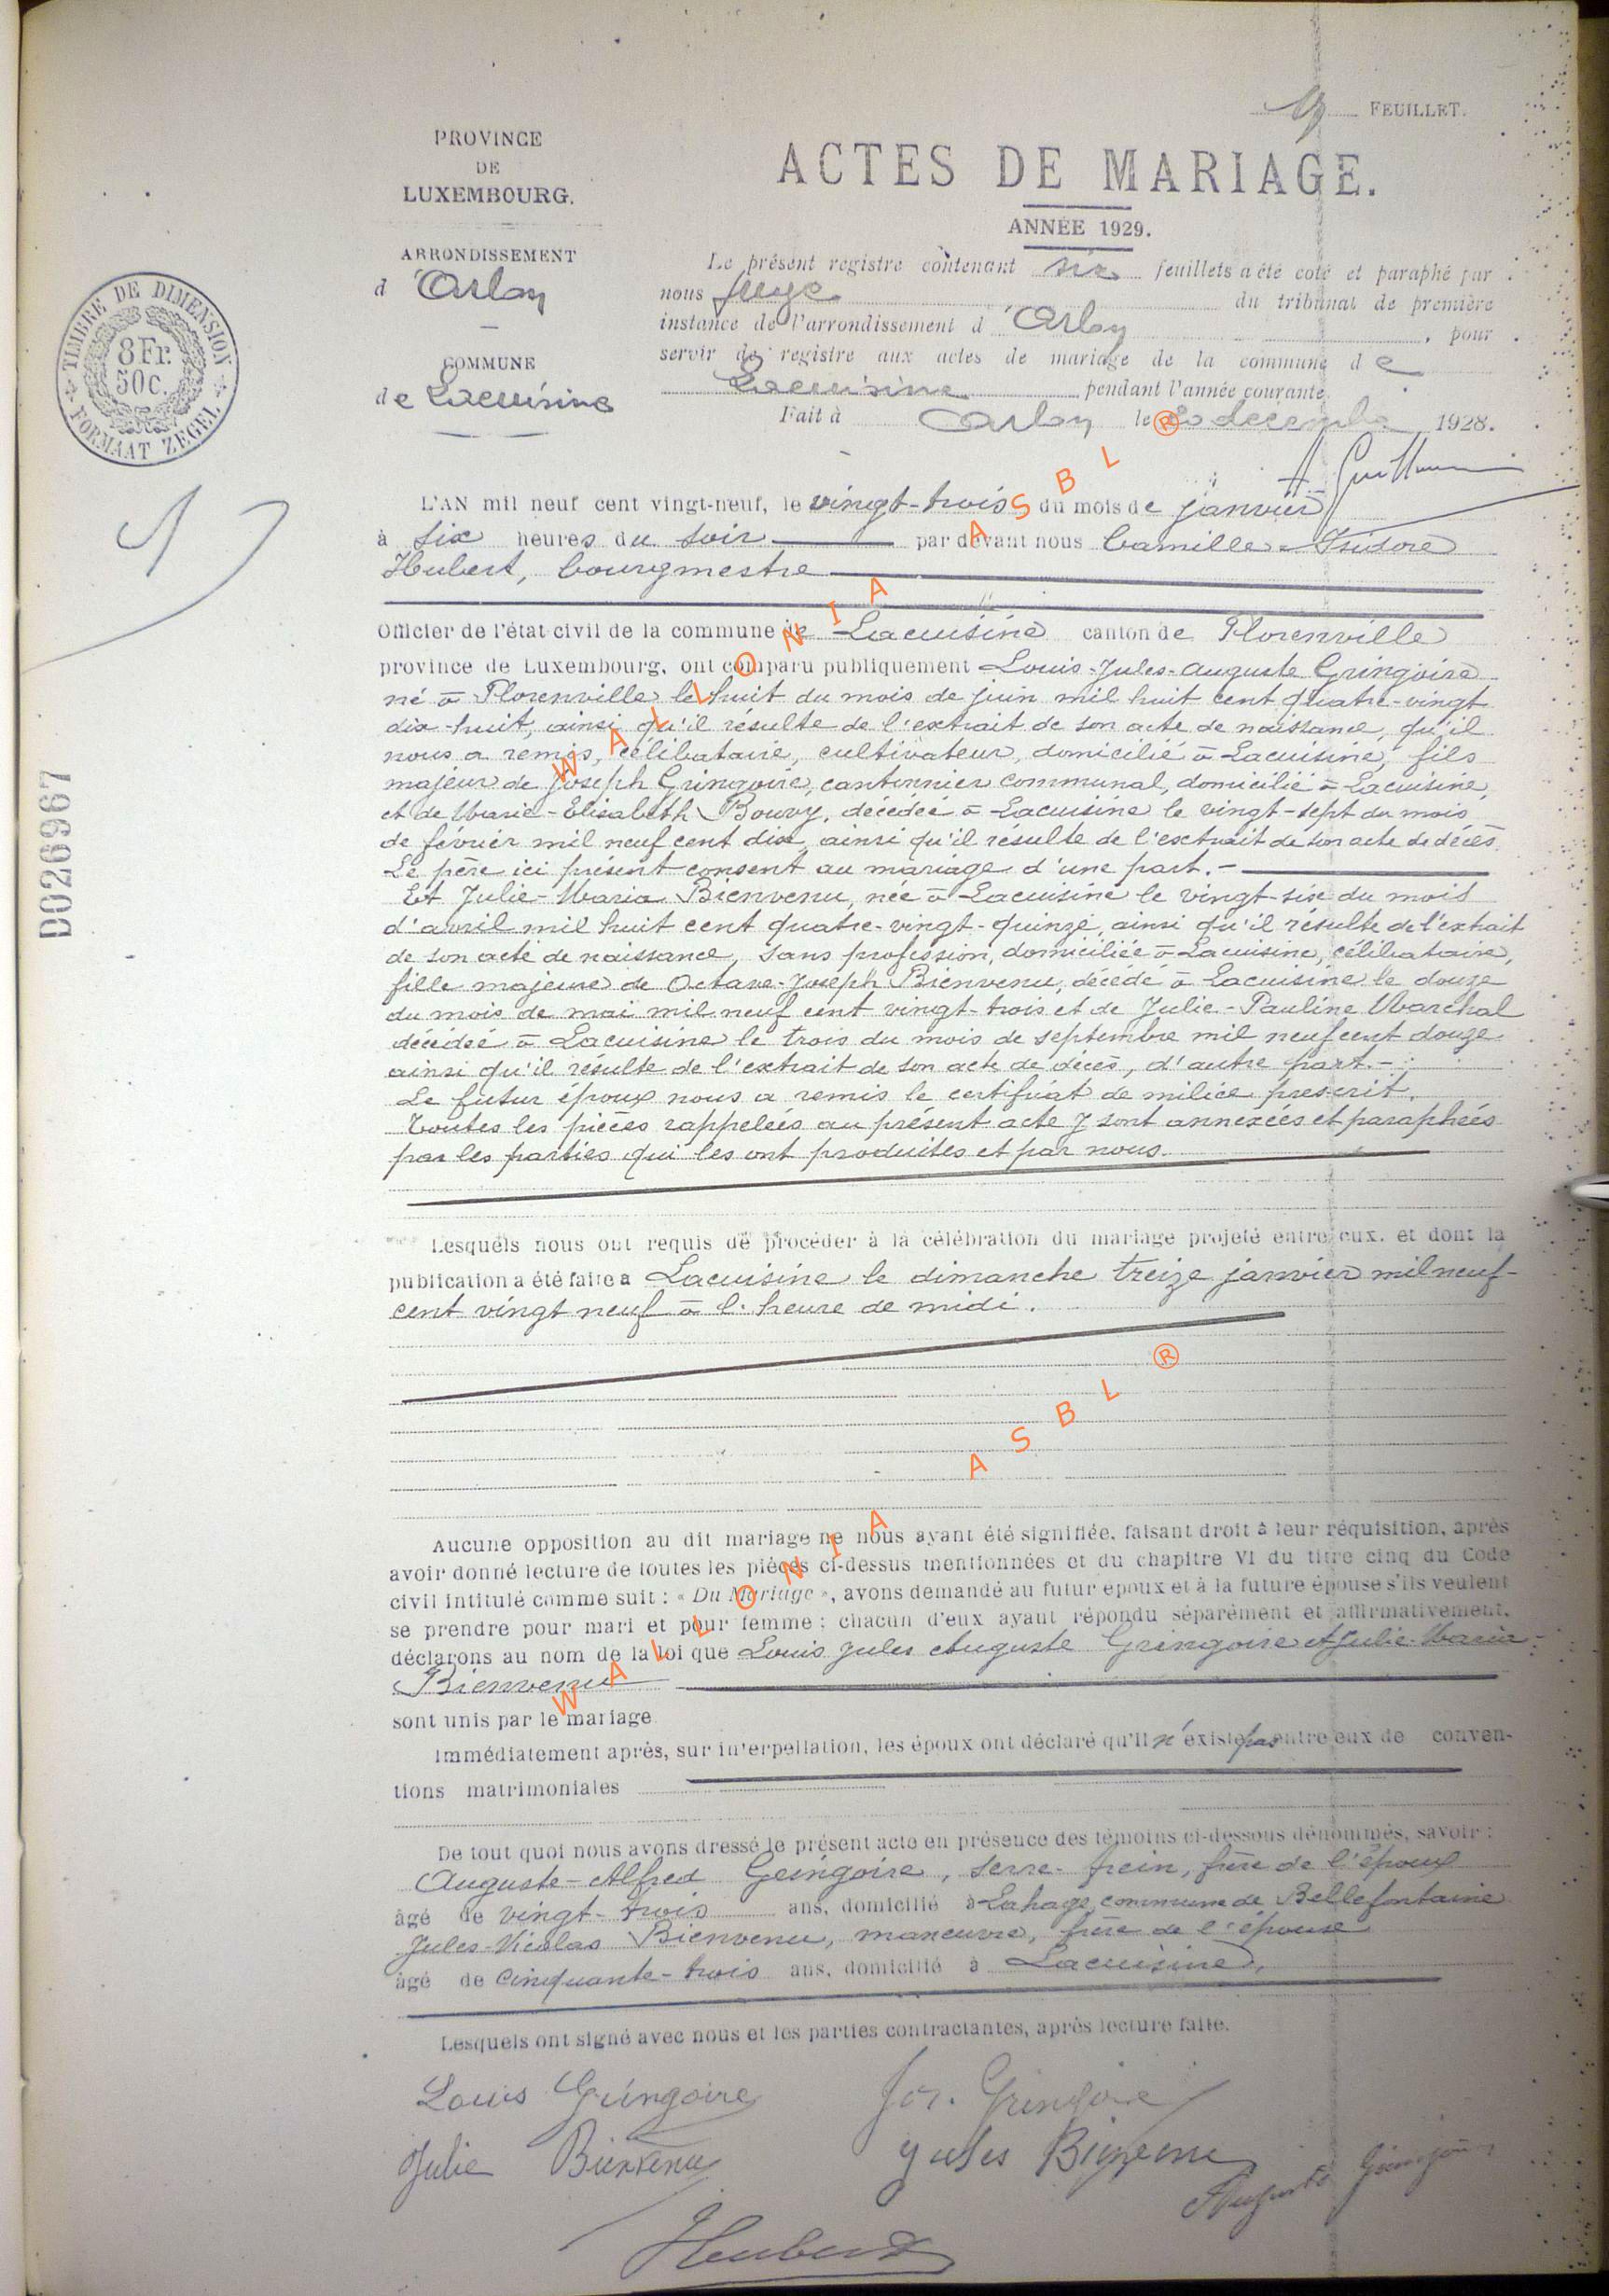 1er FEUILLET.
PROVINCE
DE
LUXEMBOURG.
ARRONDISSEMENT
d'Arlon
COMMUNE
de Lacuisine
TIMBRE DE DIMENSION
8 Fr.
50 c.
FORMAAT ZEGEL
D026967
ACTES DE MARIAGE.
ANNÉE 1929.
Le présent registre contenant six feuillets a été coté et paraphé par
nous Juge du tribunal de première
instance de l'arrondissement d'Arlon, pour
servir de registre aux actes de mariage de la commune de
Lacuisine pendant l'année courante.
Fait à Arlon le 20 décembre 1928.
L'AN mil neuf cent vingt-neuf, le vingt-trois du mois de janvier
à six heures du soir par devant nous Camille-Isidore
Hubert, bourgmestre
Officier de l'état civil de la commune de Lacuisine canton de Florenville
province de Luxembourg, ont comparu publiquement Louis-Jules-Auguste Gringoire
né à Florenville le huit du mois de juin mil huit cent quatre-vingt
dix-huit, ainsi qu'il résulte de l'extrait de son acte de naissance, qu'il
nous a remis, célibataire, cultivateur, domicilié à Lacuisine, fils
majeur de Joseph Gringoire, cantonnier communal, domicilié à Lacuisine,
et de Marie-Elisabeth Bouvy, décédée à Lacuisine le vingt-sept du mois
de février mil neuf cent dix, ainsi qu'il résulte de l'extrait de son acte de décès.
Le père ici présent consent au mariage d'une part.-
Et Julie-Maria Bienvenu, née à Lacuisine le vingt-six du mois
d'avril mil huit cent quatre-vingt-quinze, ainsi qu'il résulte de l'extrait
de son acte de naissance, sans profession, domiciliée à Lacuisine, célibataire,
fille majeure de Octave-Joseph Bienvenu, décédé à Lacuisine le douze
du mois de mai mil neuf cent vingt-trois et de Julie-Pauline Marchal
décédée à Lacuisine le trois du mois de septembre mil neuf cent douze
ainsi qu'il résulte de l'extrait de son acte de décès, d'autre part.-
Le futur époux nous a remis le certificat de milice prescrit.
Toutes les pièces rappelées au présent acte y sont annexées et paraphées
par les parties qui les ont produites et par nous.
Lesquels nous ont requis de procéder à la célébration du mariage projeté entre eux, et dont la
publication a été faite à Lacuisine le dimanche treize janvier mil neuf-
cent vingt neuf à l'heure de midi.
Aucune opposition au dit mariage ne nous ayant été signifiée, faisant droit à leur réquisition, après
avoir donné lecture de toutes les pièces ci-dessus mentionnées et du chapitre VI du titre cinq du Code
civil intitulé comme suit : « Du Mariage », avons demandé au futur époux et à la future épouse s'ils veulent
se prendre pour mari et pour femme ; chacun d'eux ayant répondu séparément et affirmativement,
déclarons au nom de la loi que Louis Jules Auguste Gringoire et Julie-Maria
Bienvenu
sont unis par le mariage
Immédiatement après, sur interpellation, les époux ont déclaré qu'il n'existe pas entre eux de conven-
tions matrimoniales
De tout quoi nous avons dressé le présent acte en présence des témoins ci-dessous dénommés, savoir :
Auguste-Alfred Gringoire, serre-frein, frère de l'époux
âgé de vingt-trois ans, domicilié à Lahage, commune de Bellefontaine
Jules-Nicolas Bienvenu, manœuvre, frère de l'épouse
âgé de cinquante-trois ans, domicilié à Lacuisine,
Lesquels ont signé avec nous et les parties contractantes, après lecture faite.
Louis Gringoire Jos. Gringoire
Julie Bienvenu Jules Bienvenu
Auguste Gringoire
Hubert
WALLONIA ASBL ®
WALLONIA ASBL ®